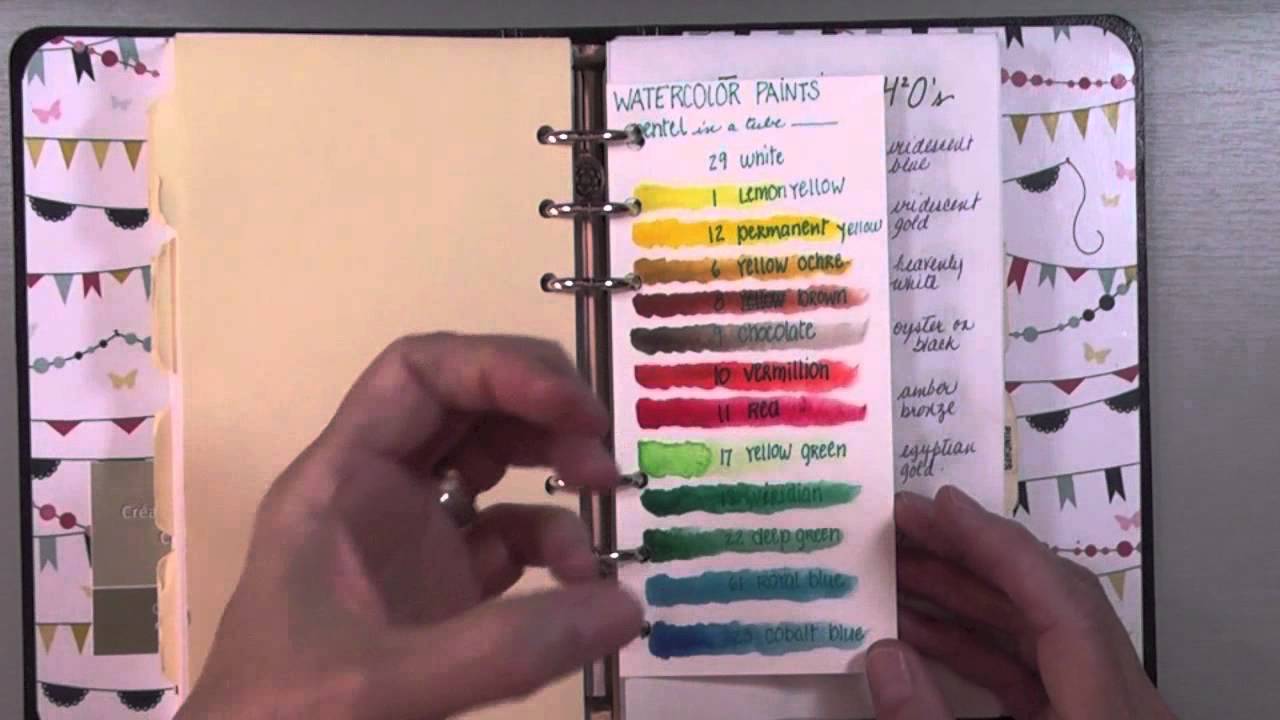 WATERCOLOR PAINTS
pentel in a tube
29 white
1 Lemon yellow
12 permanent yellow
6 yellow ochre
8 brown
9 chocolate
10 vermillion
11 Red
17 yellow green
viridian
22 deep green
61 Royal blue
25 cobalt blue
H²O's
iridescent
blue
iridescent
gold
heavenly
white
oyster on
black
amber
bronze
egyptian
gold.
Créa